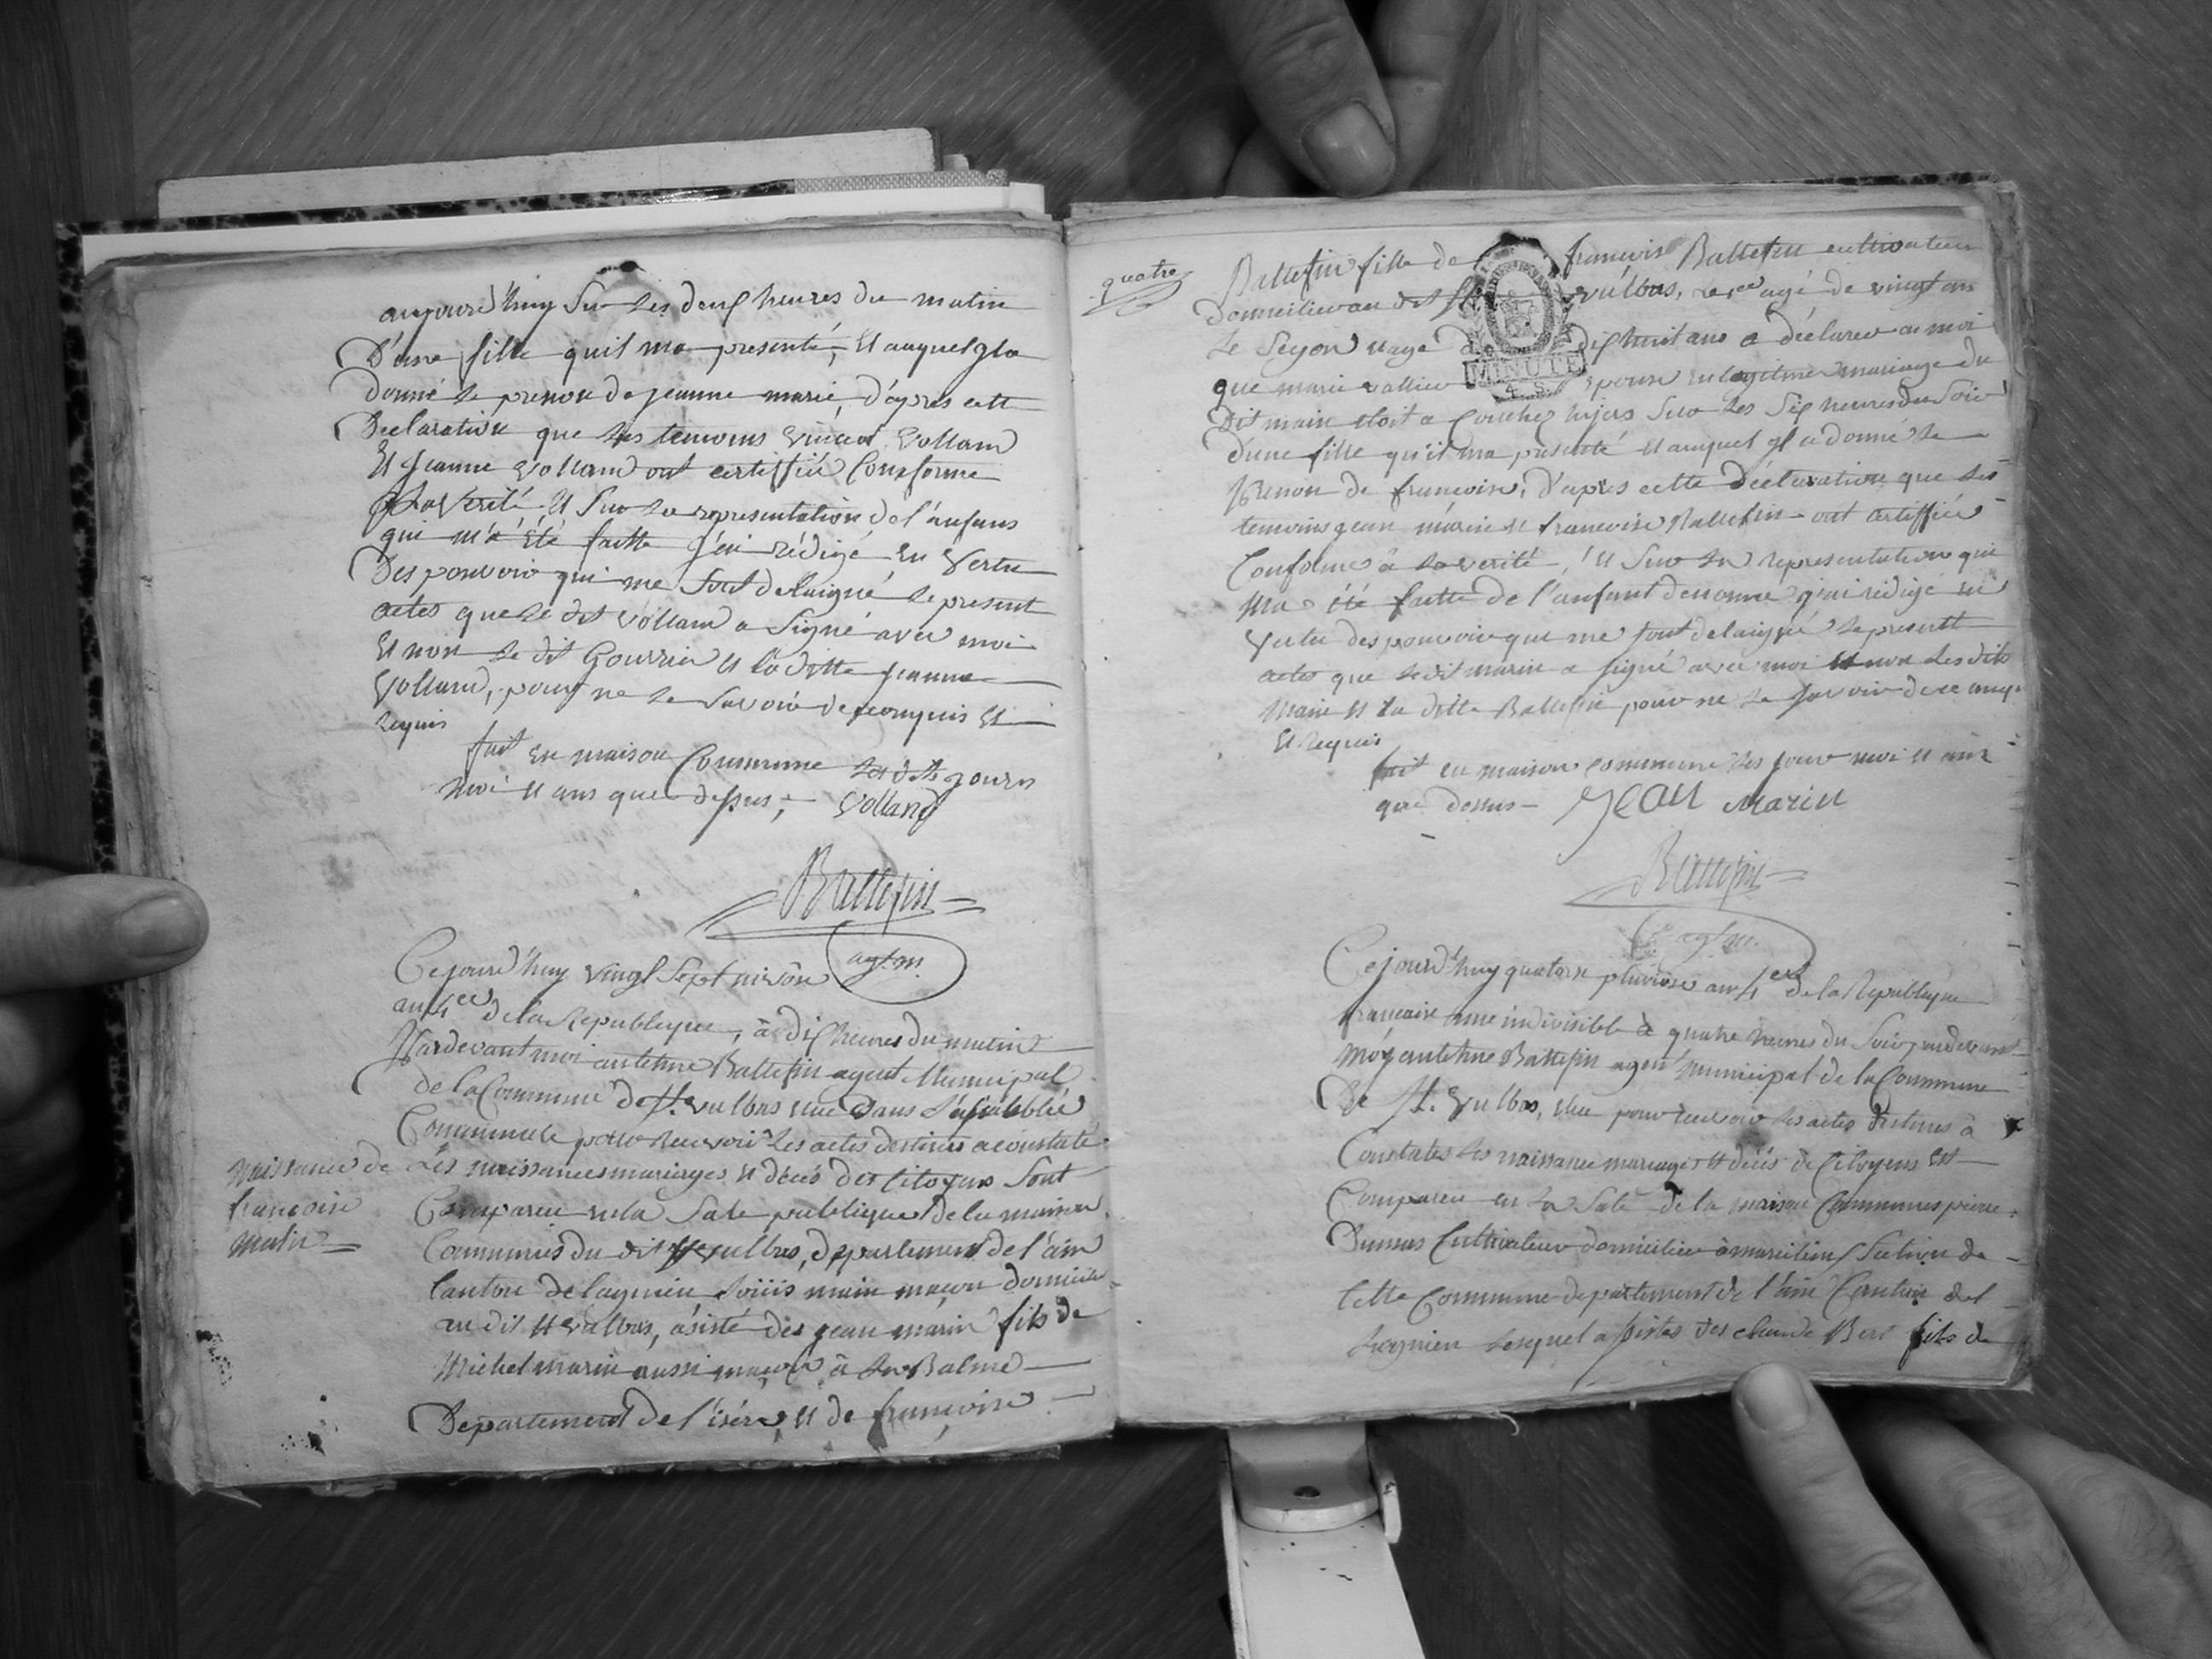 aujourd'huy Sur les deux heures du matin
D'une fille quil ma presenté, Et auquel gl a
donné le prenon de jeanne marie, d'apres cette
Declaration que les temoins vincent volland
Et jeanne volland ont certiffié Conforme
a la verité Et Sur la representation de l'anfans
qui m'a été faitte j'ai rédigé en vertu
Des pouvoir qui me sont delaigué le present
actes que le dit volland a Signé avec moi
Et non le dit Gourrin et la ditte jeanne
volland, pour ne le Savoir de ce enquis Et
requis
fait en maison Commune les dits jours
moi et ans que dessus, volland
Battefin
agt. m.
Cejourd'huy vingt Sept nivôse
an 4ee de la Republique, à dix heures du matin
Pardevant moi antehne Battefin agent Municipal
de la Commune de St. vulbas elue dans l'assemblée
Communale pour recevoir les actes destinés a constaté
Les naissances mariages et décés des Citoyens Sont
Comparu en la Sale publique de la maison
Communes du dit St vulbas, département de l'ain
Canton de lagnieu Louis main maçon domicilié
au dit St vulbas, asisté des jean marin fils de
Michel marin aussi maçon à la Balme
Departement de l'isére, et de francoise
Naissance de
françoise
main
quatre
Battefin fille de françois Battefin cultivateur
domicilié au dit St vulbas, le 1er agé de vingt ans
Le Segon et agé de dix huit ans a déclarer a moi
que marie epouse en legitime mariage du
Dit main etoit a Couchez hyers Sur les Six heures du Soir
d'une fille qu'il ma presenté et auquel gl a donné le
prenon de francoise, d'apres cette déclaration que les
temoins jean marin et francoise Battefin ont certiffié
Conforme à la verité, et Sur la representation qui
Ma été faitte de l'anfant denommé j'ai redigé en
vertu des pouvoir que me sont delaigué le present
actes que le dit marin a signé avec moi et non les dits
Main et la ditte Battefin pour ne le savoir de ce enqs.
Et requis
fait en maison commune les jour moi et ans
que dessus Jean Marin
Battefin
agt. m.
Cejourd'huy quatorze pluviose an 4ee de la Republique
francaise une indivisible à quatre heures du Soir pardevant
Moy antehne Battefin agent municipal de la Commune
De St. vulbas, elue pour recevoir les actes destinés à
Constater les naissance mariages et décés de Citoyens Est
Comparu en la Sale de la maison Communes pierre
Dumas Cultivateur domicilié à marcilieux Section de
Cette Commune departement de l'ain Canton de
Lagnieu Lesquel assisté des claude Bert fils de
MINUTE